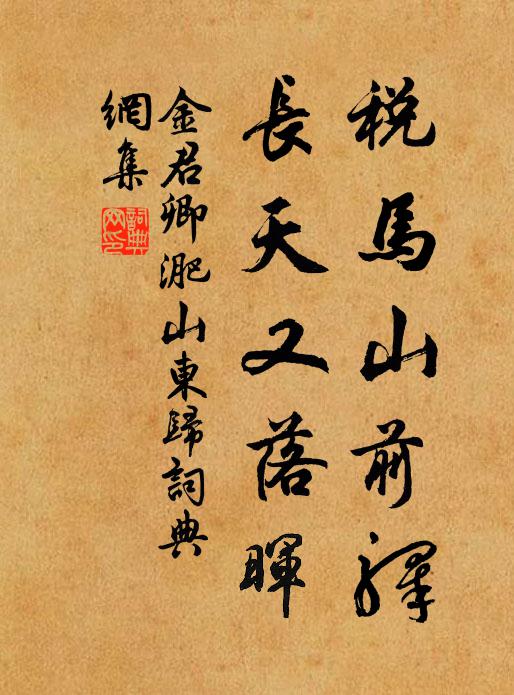 税馬山前驛
長天又落暉
金君卿淝山東歸詞典
網集
詞典網印